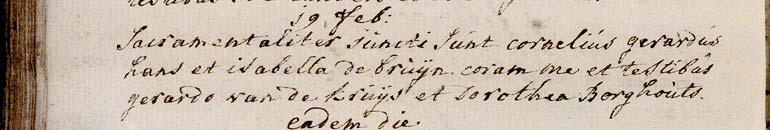 19 feb:
Sacramentaliter juncti sunt cornelius gerardus
hans et isabella de bruijn. coram me et testibus
gerardo van de kruijs et Dorothea Borghouts.
eadem die